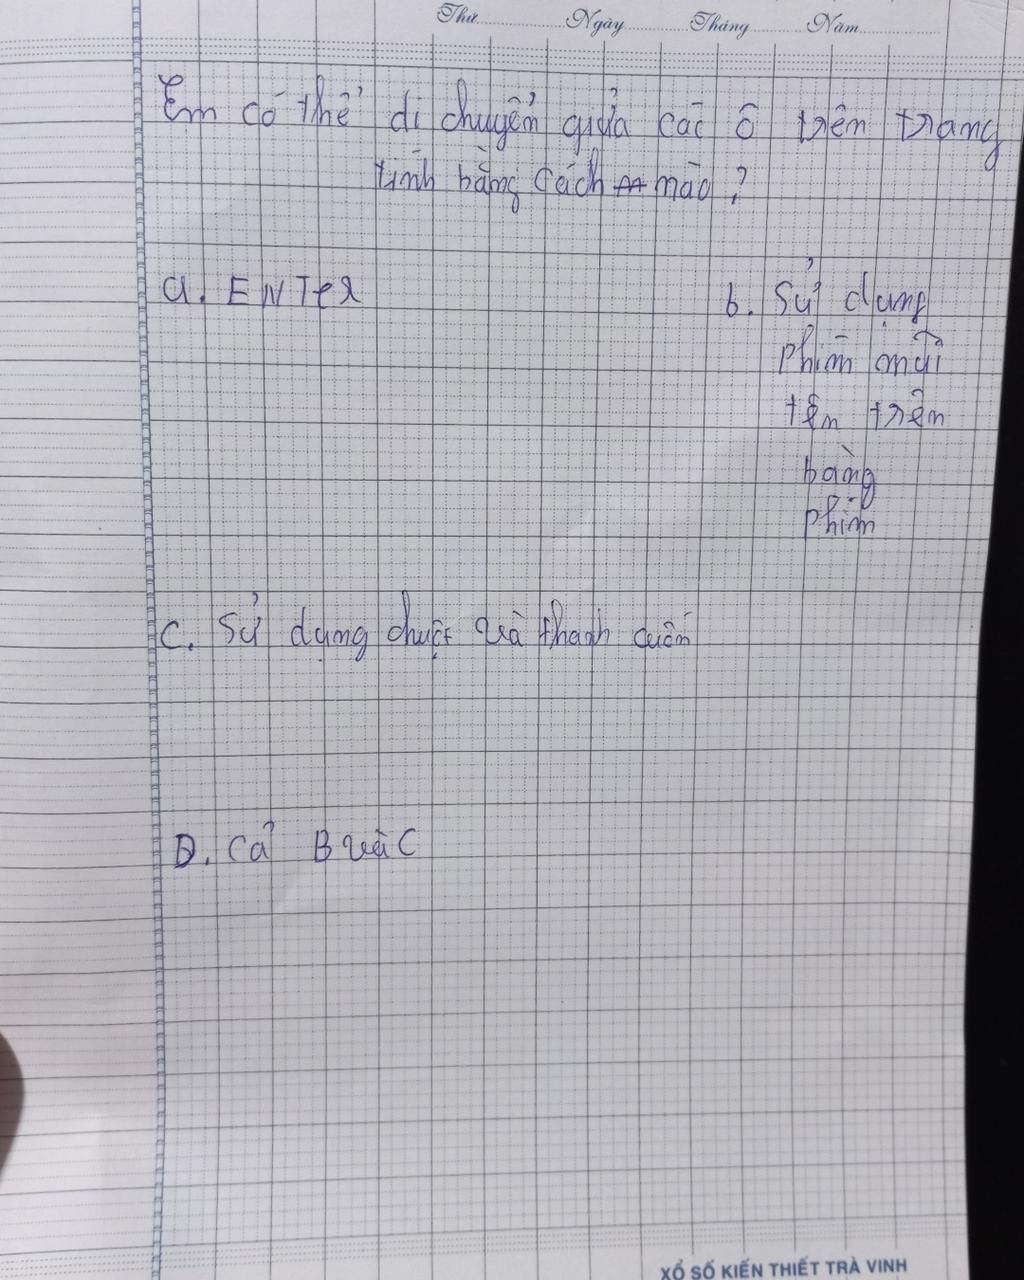 Thứ Ngày Tháng Năm
Em có thể di chuyển giữa các ô trên trang
tính bằng cách nào?
a. ENTer
b. Sử dụng
phím mũi
tên trên
bàng
phím
C. Sử dụng chuột và thanh cuốn
D. Cả B và C
XỔ SỐ KIẾN THIẾT TRÀ VINH